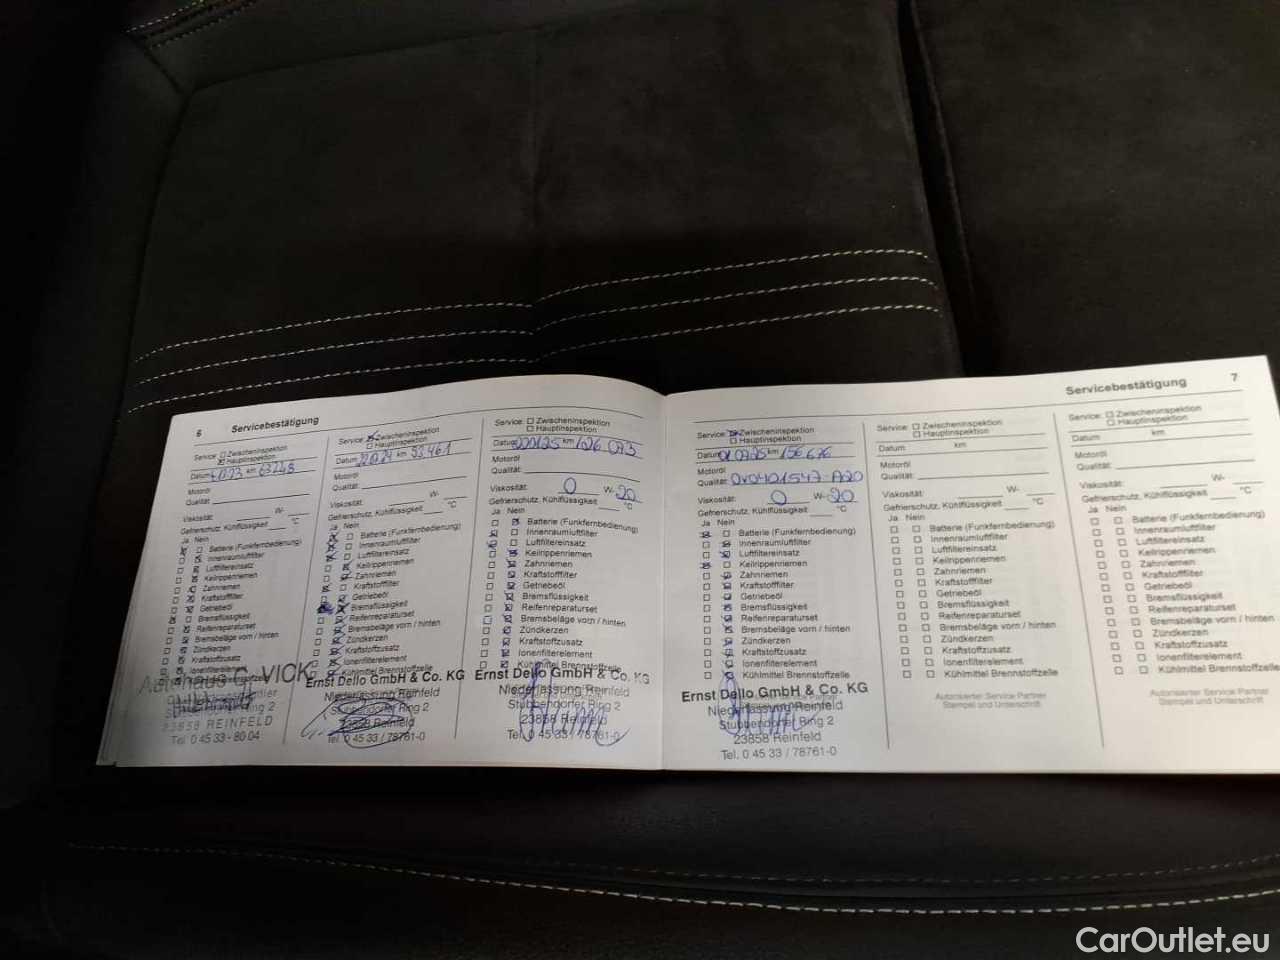 6 Servicebestätigung
Service: Zwischeninspektion
Hauptinspektion
Datum km 63248
Motoröl
Qualität:
Viskosität: W-
Gefrierschutz, Kühlflüssigkeit °C
Ja Nein
Batterie (Funkfernbedienung)
Innenraumluftfilter
Luftfiltereinsatz
Keilrippenriemen
Zahnriemen
Kraftstofffilter
Getriebeöl
Bremsflüssigkeit
Reifenreparaturset
Bremsbeläge vorn / hinten
Zündkerzen
Kraftstoffzusatz
Ionenfilterelement
Autohaus VICK
Ring 2
23858 REINFELD
Tel. 0 45 33 - 80 04
Service: Zwischeninspektion
Hauptinspektion
Datum 22.01.24 km 93.461
Motoröl
Qualität:
Viskosität: W-
Gefrierschutz, Kühlflüssigkeit °C
Ja Nein
Batterie (Funkfernbedienung)
Innenraumluftfilter
Luftfiltereinsatz
Keilrippenriemen
Zahnriemen
Kraftstofffilter
Getriebeöl
Bremsflüssigkeit
Reifenreparaturset
Bremsbeläge vorn / hinten
Zündkerzen
Kraftstoffzusatz
Ionenfilterelement
Kühlmittel Brennstoffzelle
Ernst Dello GmbH & Co. KG
Niederlassung Reinfeld
Stubbendorfer Ring 2
23858 Reinfeld
Tel. 0 45 33 / 78761-0
Service: Zwischeninspektion
Hauptinspektion
Datum km 126 073
Motoröl
Qualität:
Viskosität: 0 W- 20
Gefrierschutz, Kühlflüssigkeit °C
Ja Nein
Batterie (Funkfernbedienung)
Innenraumluftfilter
Luftfiltereinsatz
Keilrippenriemen
Zahnriemen
Kraftstofffilter
Getriebeöl
Bremsflüssigkeit
Reifenreparaturset
Bremsbeläge vorn / hinten
Zündkerzen
Kraftstoffzusatz
Ionenfilterelement
Kühlmittel Brennstoffzelle
Ernst Dello GmbH & Co. KG
Niederlassung Reinfeld
Stubbendorfer Ring 2
23858 Reinfeld
Tel. 0 45 33 / 78761-0
Servicebestätigung 7
Service: Zwischeninspektion
Hauptinspektion
Datum 01.07.25 km 156 676
Motoröl
Qualität: 0v0401547-A20
Viskosität: 0 W- 20
Gefrierschutz, Kühlflüssigkeit °C
Ja Nein
Batterie (Funkfernbedienung)
Innenraumluftfilter
Luftfiltereinsatz
Keilrippenriemen
Zahnriemen
Kraftstofffilter
Getriebeöl
Bremsflüssigkeit
Reifenreparaturset
Bremsbeläge vorn / hinten
Zündkerzen
Kraftstoffzusatz
Ionenfilterelement
Kühlmittel Brennstoffzelle
Ernst Dello GmbH & Co. KG
Niederlassung Reinfeld
Stubbendorfer Ring 2
23858 Reinfeld
Tel. 0 45 33 / 78761-0
Service: Zwischeninspektion
Hauptinspektion
Datum km
Motoröl
Qualität:
Viskosität: W-
Gefrierschutz, Kühlflüssigkeit °C
Ja Nein
Batterie (Funkfernbedienung)
Innenraumluftfilter
Luftfiltereinsatz
Keilrippenriemen
Zahnriemen
Kraftstofffilter
Getriebeöl
Bremsflüssigkeit
Reifenreparaturset
Bremsbeläge vorn / hinten
Zündkerzen
Kraftstoffzusatz
Ionenfilterelement
Kühlmittel Brennstoffzelle
Autorisierter Service Partner
Stempel und Unterschrift
Service: Zwischeninspektion
Hauptinspektion
Datum km
Motoröl
Qualität:
Viskosität: W-
Gefrierschutz, Kühlflüssigkeit °C
Ja Nein
Batterie (Funkfernbedienung)
Innenraumluftfilter
Luftfiltereinsatz
Keilrippenriemen
Zahnriemen
Kraftstofffilter
Getriebeöl
Bremsflüssigkeit
Reifenreparaturset
Bremsbeläge vorn / hinten
Zündkerzen
Kraftstoffzusatz
Ionenfilterelement
Kühlmittel Brennstoffzelle
Autorisierter Service Partner
Stempel und Unterschrift
CarOutlet.eu